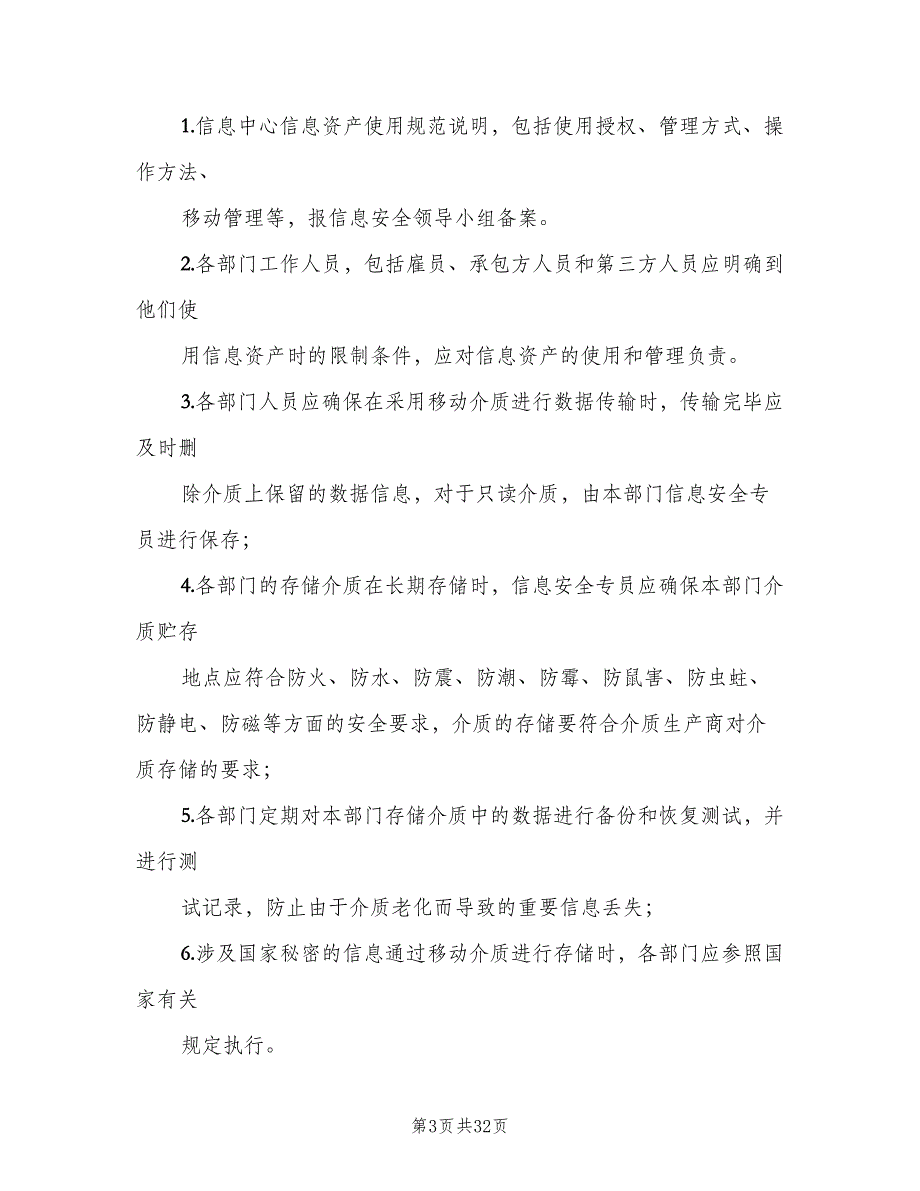 1.信息中心信息资产使用规范说明，包括使用授权、管理方式、操
作方法、
移动管理等，报信息安全领导小组备案。
2.各部门工作人员，包括雇员、承包方人员和第三方人员应明确到
他们使
用信息资产时的限制条件，应对信息资产的使用和管理负责。
3.各部门人员应确保在采用移动介质进行数据传输时，传输完毕应
及时删
除介质上保留的数据信息，对于只读介质，由本部门信息安全专
员进行保存；
4.各部门的存储介质在长期存储时，信息安全专员应确保本部门介
质贮存
地点应符合防火、防水、防震、防潮、防霉、防鼠害、防虫蛀、
防静电、防磁等方面的安全要求，介质的存储要符合介质生产商对介
质存储的要求；
5.各部门定期对本部门存储介质中的数据进行备份和恢复测试，并
进行测
试记录，防止由于介质老化而导致的重要信息丢失；
6.涉及国家秘密的信息通过移动介质进行存储时，各部门应参照国
家有关
规定执行。
第3页共32页